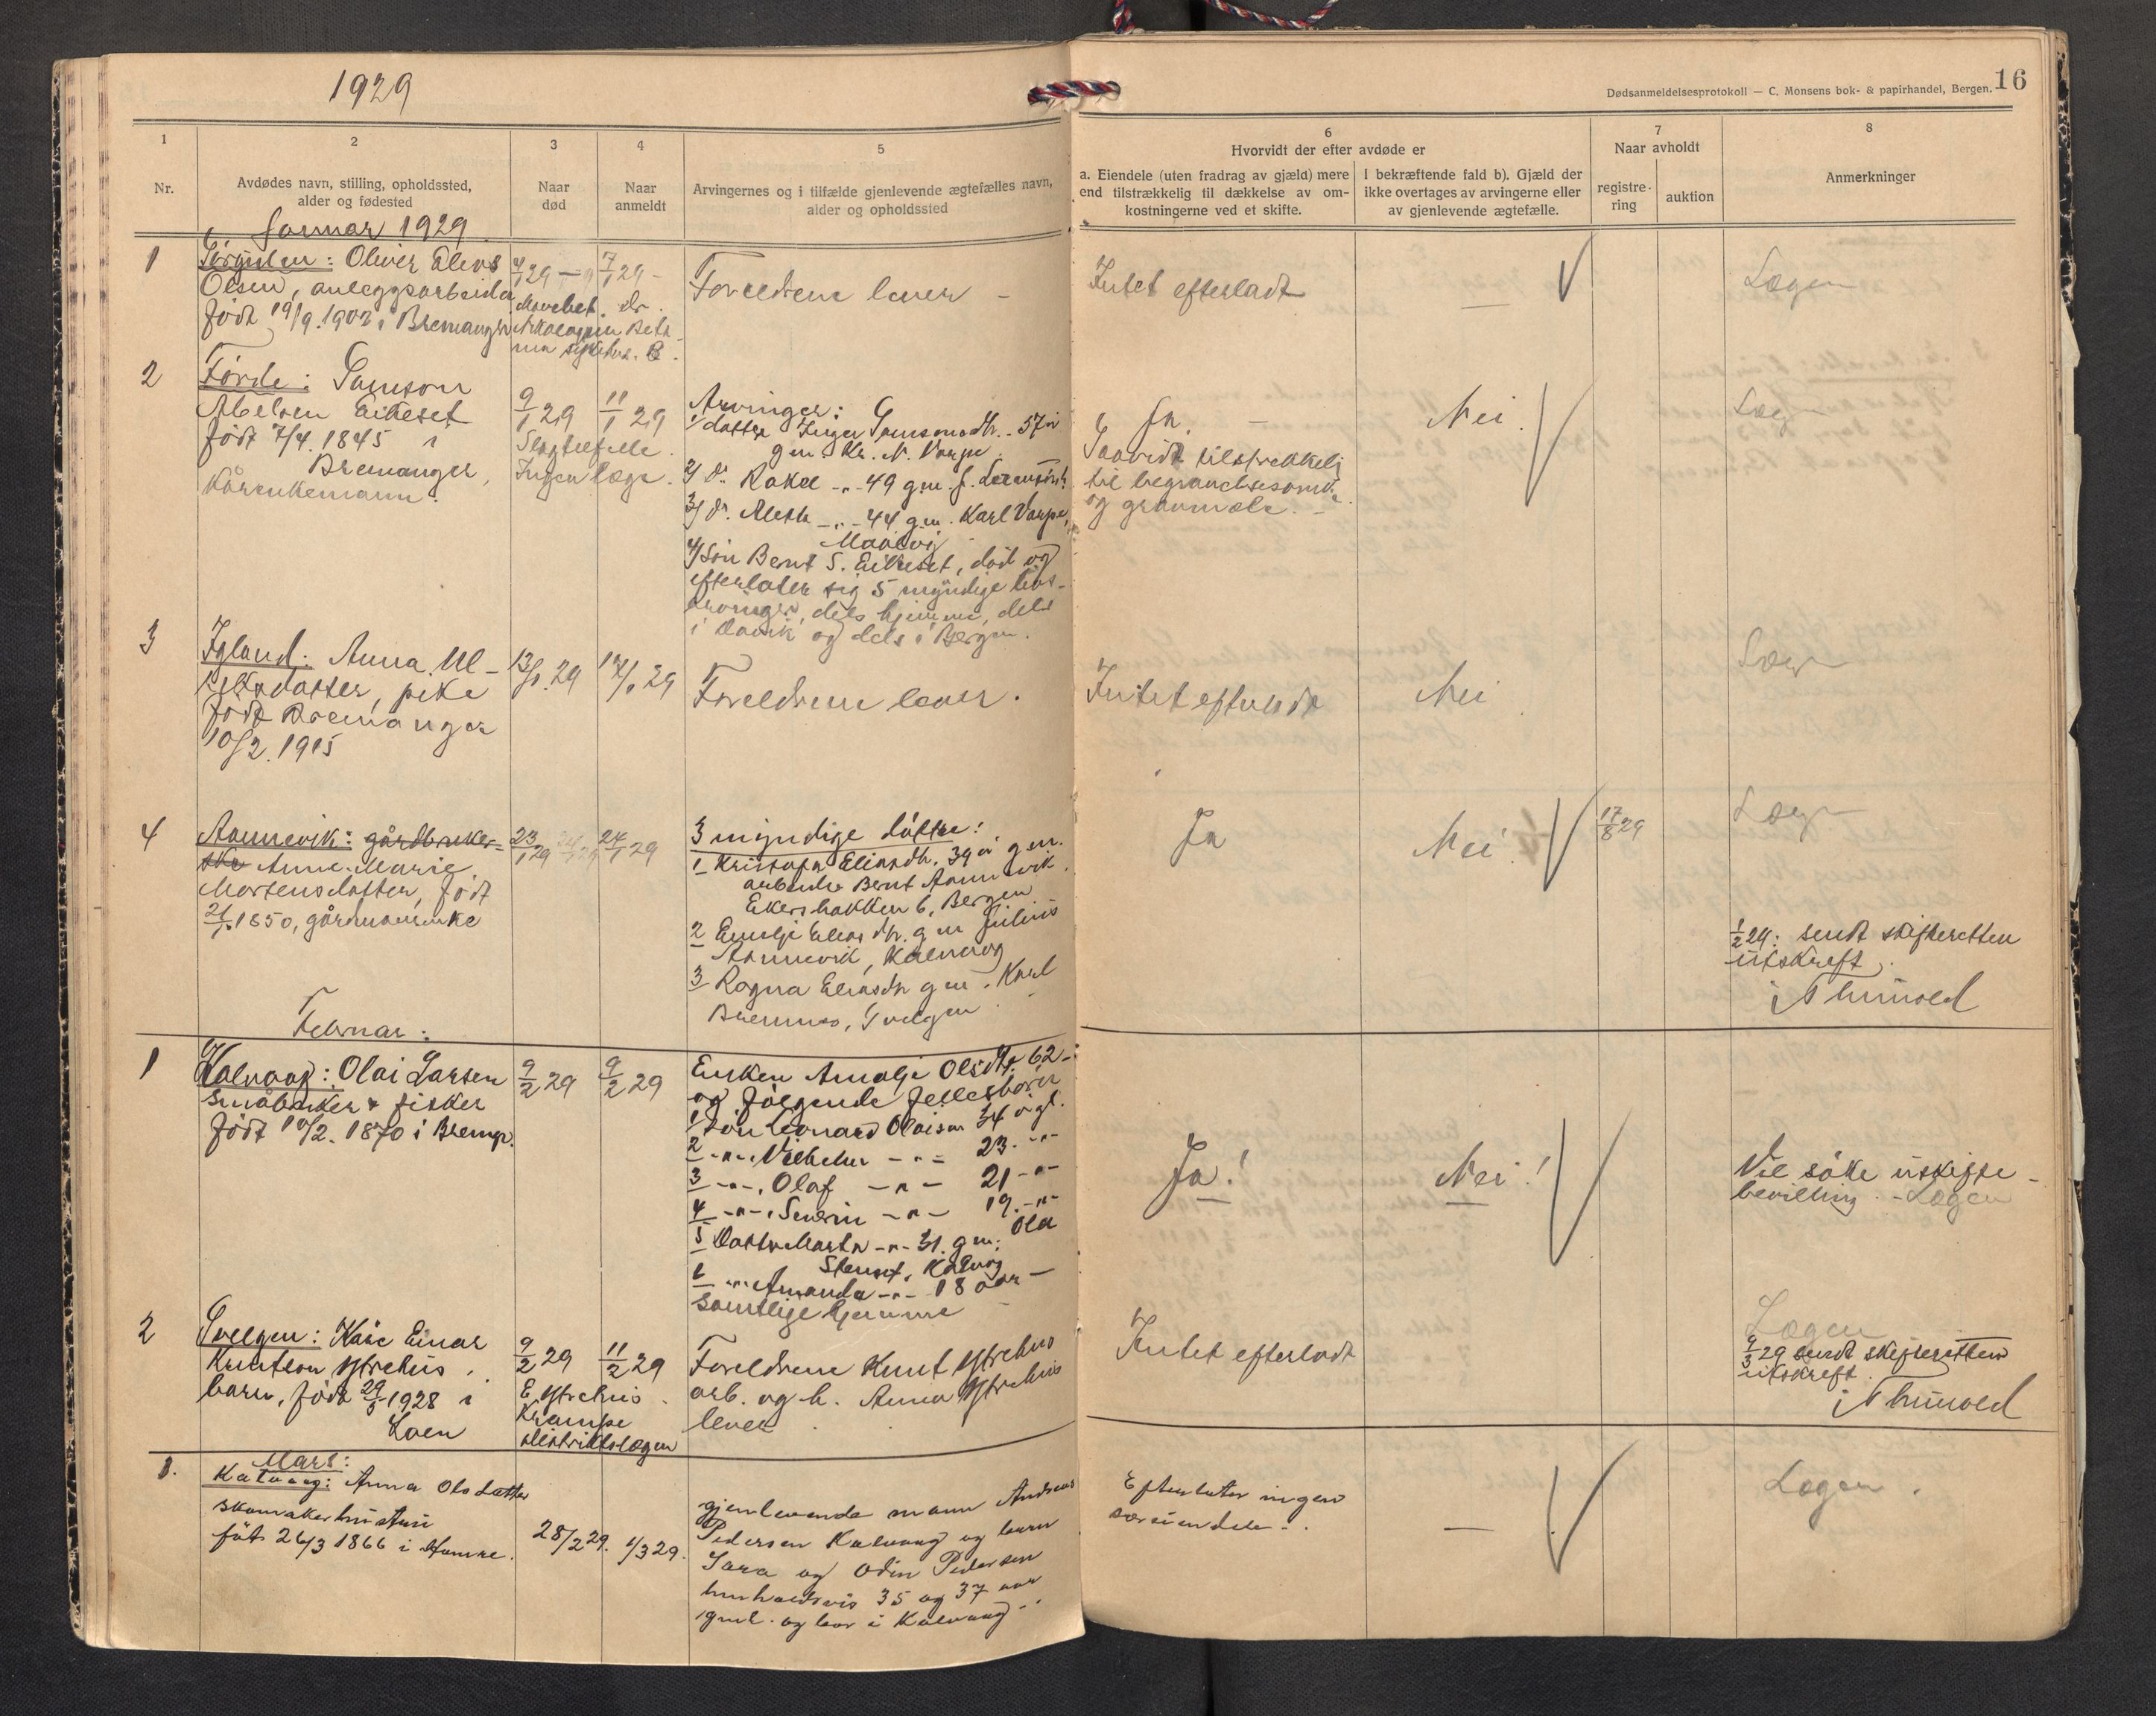 1929
Dødsanmeldelsesprotokoll — C. Monsens bok- & papirhandel, Bergen. 16
1
2
3
4
5
6
7
8
Nr.
Avdødes navn, stilling, opholdssted,
alder og fødested
Naar
død
Naar
anmeldt
Arvingernes og i tilfælde gjenlevende ægtefælles navn,
alder og opholdssted
Hvorvidt der efter avdøde er
a. Eiendele (uten fradrag av gjæld) mere
end tilstrækkelig til dækkelse av om-
kostningerne ved et skifte.
I bekræftende fald b). Gjæld der
ikke overtages av arvingerne eller
av gjenlevende ægtefælle.
Naar avholdt
registre-
ring
auktion
Anmerkninger
Januar 1929
1
Oliver Elias
Olsen, anleggsarbeider
født 19/9.1902 i Bremanger
4/1 29
7/1 29
Foreldrene lever
Intet efterladt
—
Lægen
2
Førde: Samson
Abelsen Eikeset
født 7/4.1845 i
Bremanger,
Kårenkemann.
9/1 29
11/1 29
Slagtilfelle.
Ingen læge.
Arvinger:
1/ datter Inger Samsonsdtr. 57 år
gm. Kr. N. Varpe
2/ Dr. Rakel -"- 49 gm. J.
3/ Dr. Aleth -"- 44 gm. Karl Varpe,
4/ Søn Bernt S. Eikeset, død og
efterlater sig 5 myndige livs-
arvinger, dels hjemme, dels
i Davik og dels i Bergen.
Ja.
Saavidt tilstrekkelig
til begravelsesomk.
og gravmæle.
Nei.
Læg
3
Igland: Anna
datter, pike
født Bremanger
10/2.1915
13/1.29
17/1 29
Foreldrene lever.
Intet efterladt
Nei
Læg
4
Aannevik: gårdbruker-
ske Anne Marie
Mortensdatter, født
21/1.1850, gårdmannenke
23/1 29
24/1 29
3 myndige døttre:
1 Kristofa Eliasdtr. 39 år gm.
arbeider Bernt Aannevik.
Ekersbakken 6, Bergen
2 Emelje Elias dtr. gm Julius
Aannevik, Kalvaag
3 Ragna Eliasdtr gm. Karl
Bremnes, Svelgen
Ja
Nei.
17/8 29
Læg
1/2 29: sendt skifteretten
utskrift.
Februar:
1
Kalvaag: Olai Larsen
småbruker & fisker
født 10/2.1870 i Bremgr.
9/2 29
9/2 29
Enken Amalje Olsdtr. 62
og følgende fellesbørn
1 Søn Leonard Olaisen 34 år gl.
2 -"- Vilhelm -"- 23 -"-
3 -"- Olaf -"- 21 -"-
4 -"- Severin -"- 19 -"-
5 Datter Marta -"- 31. gm. Ola
Kalvåg
6 -"- Amanda -"- 18 aar
samtlige hjemme
Ja!
Nei!
Vil søke uskifte-
bevilling. - Lægen
2
Svelgen: Kåre Einar
Knutson Ystrehus,
barn, født 29/5 1928 i
Loen
9/2 29
11/2 29
E. Ystrehus
Krampe
distriktslægen
Foreldrene Knut Ystrehus
arb. og h. Anna Ystrehus
lever
Intet efterladt
Lægen
9/3 29 sendt skifteretten
utskrift.
Mars:
1.
Kalvaag: Anna Olsdatter
skomakerhustru
født 26/3 1866 i
28/2 29.
1/3 29.
gjenlevende mann Andreas
Pedersen Kalvaag og barn
Sara og Odin Pedersen
henholdsvis 35 og 37 aar
gml. og bor i Kalvaag
Efterlater ingen
særeiendele
—
Lægen.